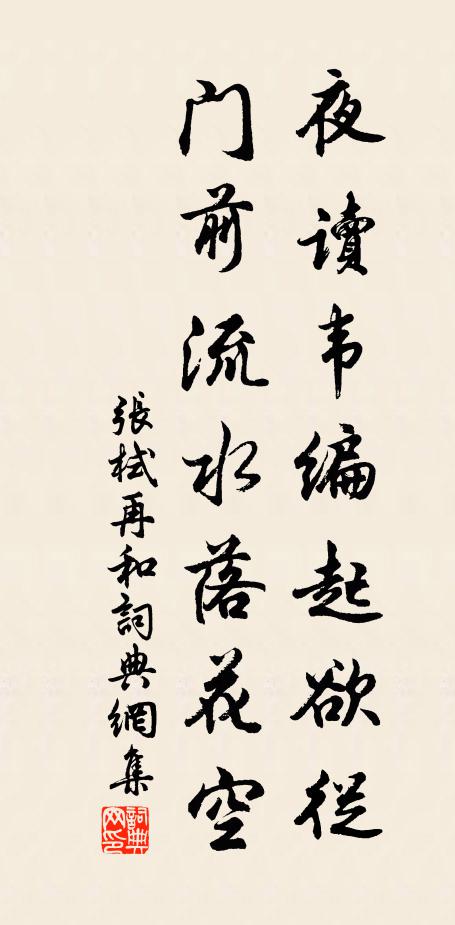 夜讀韦编起欲從
门前流水落花空
張栻再和詞典網集
詞典网印